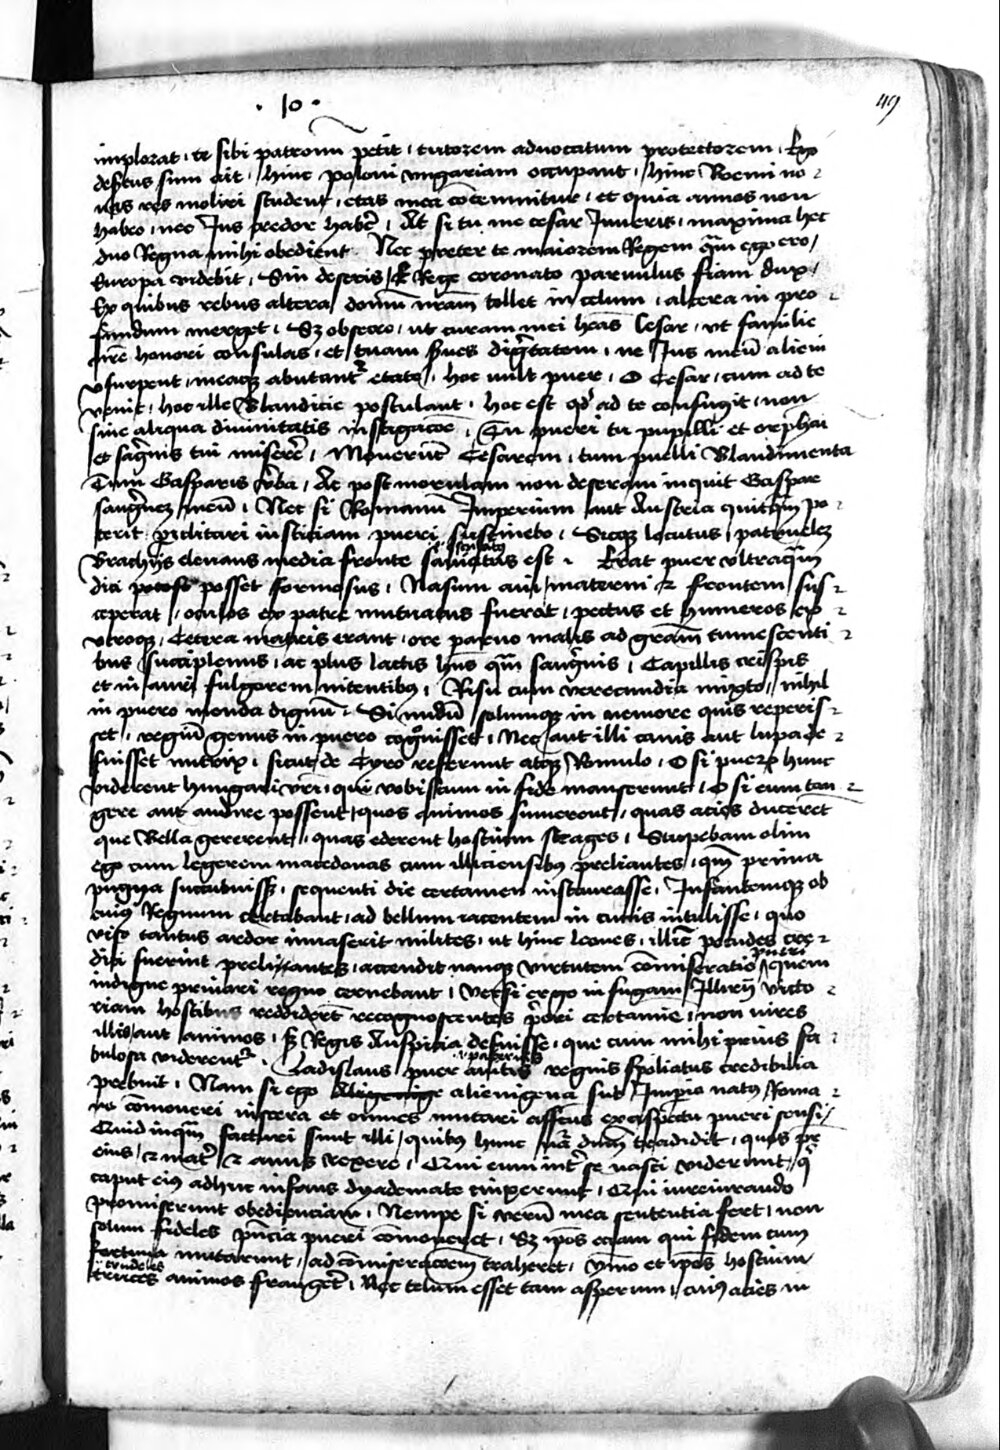 · 10 ·
49
implorat, te sibi patronū petit, tutorem advocatum protectorem, Ego
desertus sum ait, hinc poloni vngariam occupant, hinc Boemi no
uas res moliri student, etas mea cōtemnitur, et quia annos non
habeo, nec Jus credor habere, At si tu me cesar Juueris, maxima hec
duo Regna mihi obedient. Nec preter te maiorem Regem quā ego ero,
Europa videbit, Sin deseris, Rege coronato paruulus fiam dux,
Ex quibus rebus altera domū nrām tollet in celum, altera in pro
fundum merget, Sz obsecro, ut curam mei hēas Cesar, vt familie
nrē honori consulas, et tuam serues dignitatem, ne Jus meū alieni
vsurpent, meaqz abutantr etate, hoc uult puer, O Cesar, cum ad te
venit, hoc ille blanditie postulant, hoc est qd ad te confugit, non
sine aliqua diuinitatis instigacōe, Tu pueri tu pupilli et orphani
et sangnis tui miserere, Mouerunt Cesarem, tum puelli Blandimenta
Tum Gasparis vrba, At post morulam non deseram inquit Gaspar
sanguinez meū, Nec si Romanū Imperium aut Austria quicquam po
terit, periclitari iusticiam pueri sustinebo, Sicqz locutus, patruelez
Brachijs eleuans media fronte sauiatus est. Erat puer vltraquā
dici posset formosus, Nasum aui materni et frontem sus
ceperat, oculos ex patre mutuatus fuerat, pectus et humeros ex
vtroqz, Cetera matris erant, ore paruo malis ad grām tumescenti
bus succiplenus, ac plus lactis hūs quā sanguinis, Capillis crispis
et in auri fulgorem nitentibus, Risu cum verecundia mixto, nihil
in puero menda dignū. Si nudū solumqz in nemore quis reperis
set, regiū genus in puero cognisset, Nec aut illi canis aut lupa de
fuisset nutrix, sicut de Cyro referunt atqz Romulo, O si puerū hunc
viderent hungari vri, qui vobiscum in fide manserunt, O si eum tan
gere aut audire possent, quos animos sumerent, quas acies duceret
que Bella gererent, quas ederent hostium strages, Stupebam olim
ego cum legerem macedonas cum illiciensibus preliantes, quū prima
pugna succubuissz, sequenti die certamen instaurasse, Infantemqz ob
cuius Regnum certabant, ad bellum iacentem in cunis intulisse, quo
viso tantus ardor inuaserit milites, ut hinc leones, illic pecudes cre
dici fuerint preliantes, accendit namqz virtutem cōmiseratio pueri quem
indigne priuari regno cernebant, Versi ergo in fugam Illirij victo
riam hostibus reddiderūt recognoscentes priori certamīe, non uires
illis aut animos, sz Regis Auspicia defuisse, que cum mihi prius fa
bulosa viderentr. Ladislaus puer auitis paternis regnis spoliatus credibilia
prebuit, Nam si ego alienigena sub Impio natus Roma
no cōmoueri viscera et omnes mutari affectus ex aspectu pueri sensi,
Quid inquā facturi sunt illi, quibus hunc nrā dnūm tradidit, quos pr
eius, et matr et auus rexere, Qui eum intr se nasci viderunt, q
caput eius adhuc infans dyademate cinxerunt, Qui iureiurando
promiserunt obedienciam, Nempe si verū mea sententia fert, non
solum fideles pñcia pueri cōmoueret, Sz ipos eciam qui fidem cum
fortuna mutarunt, ad cōmiseracōem traheret, ymo et ipos hostium
crudeles
truces animos frangeret, Nec telum esset tam asperum, cuius acies in